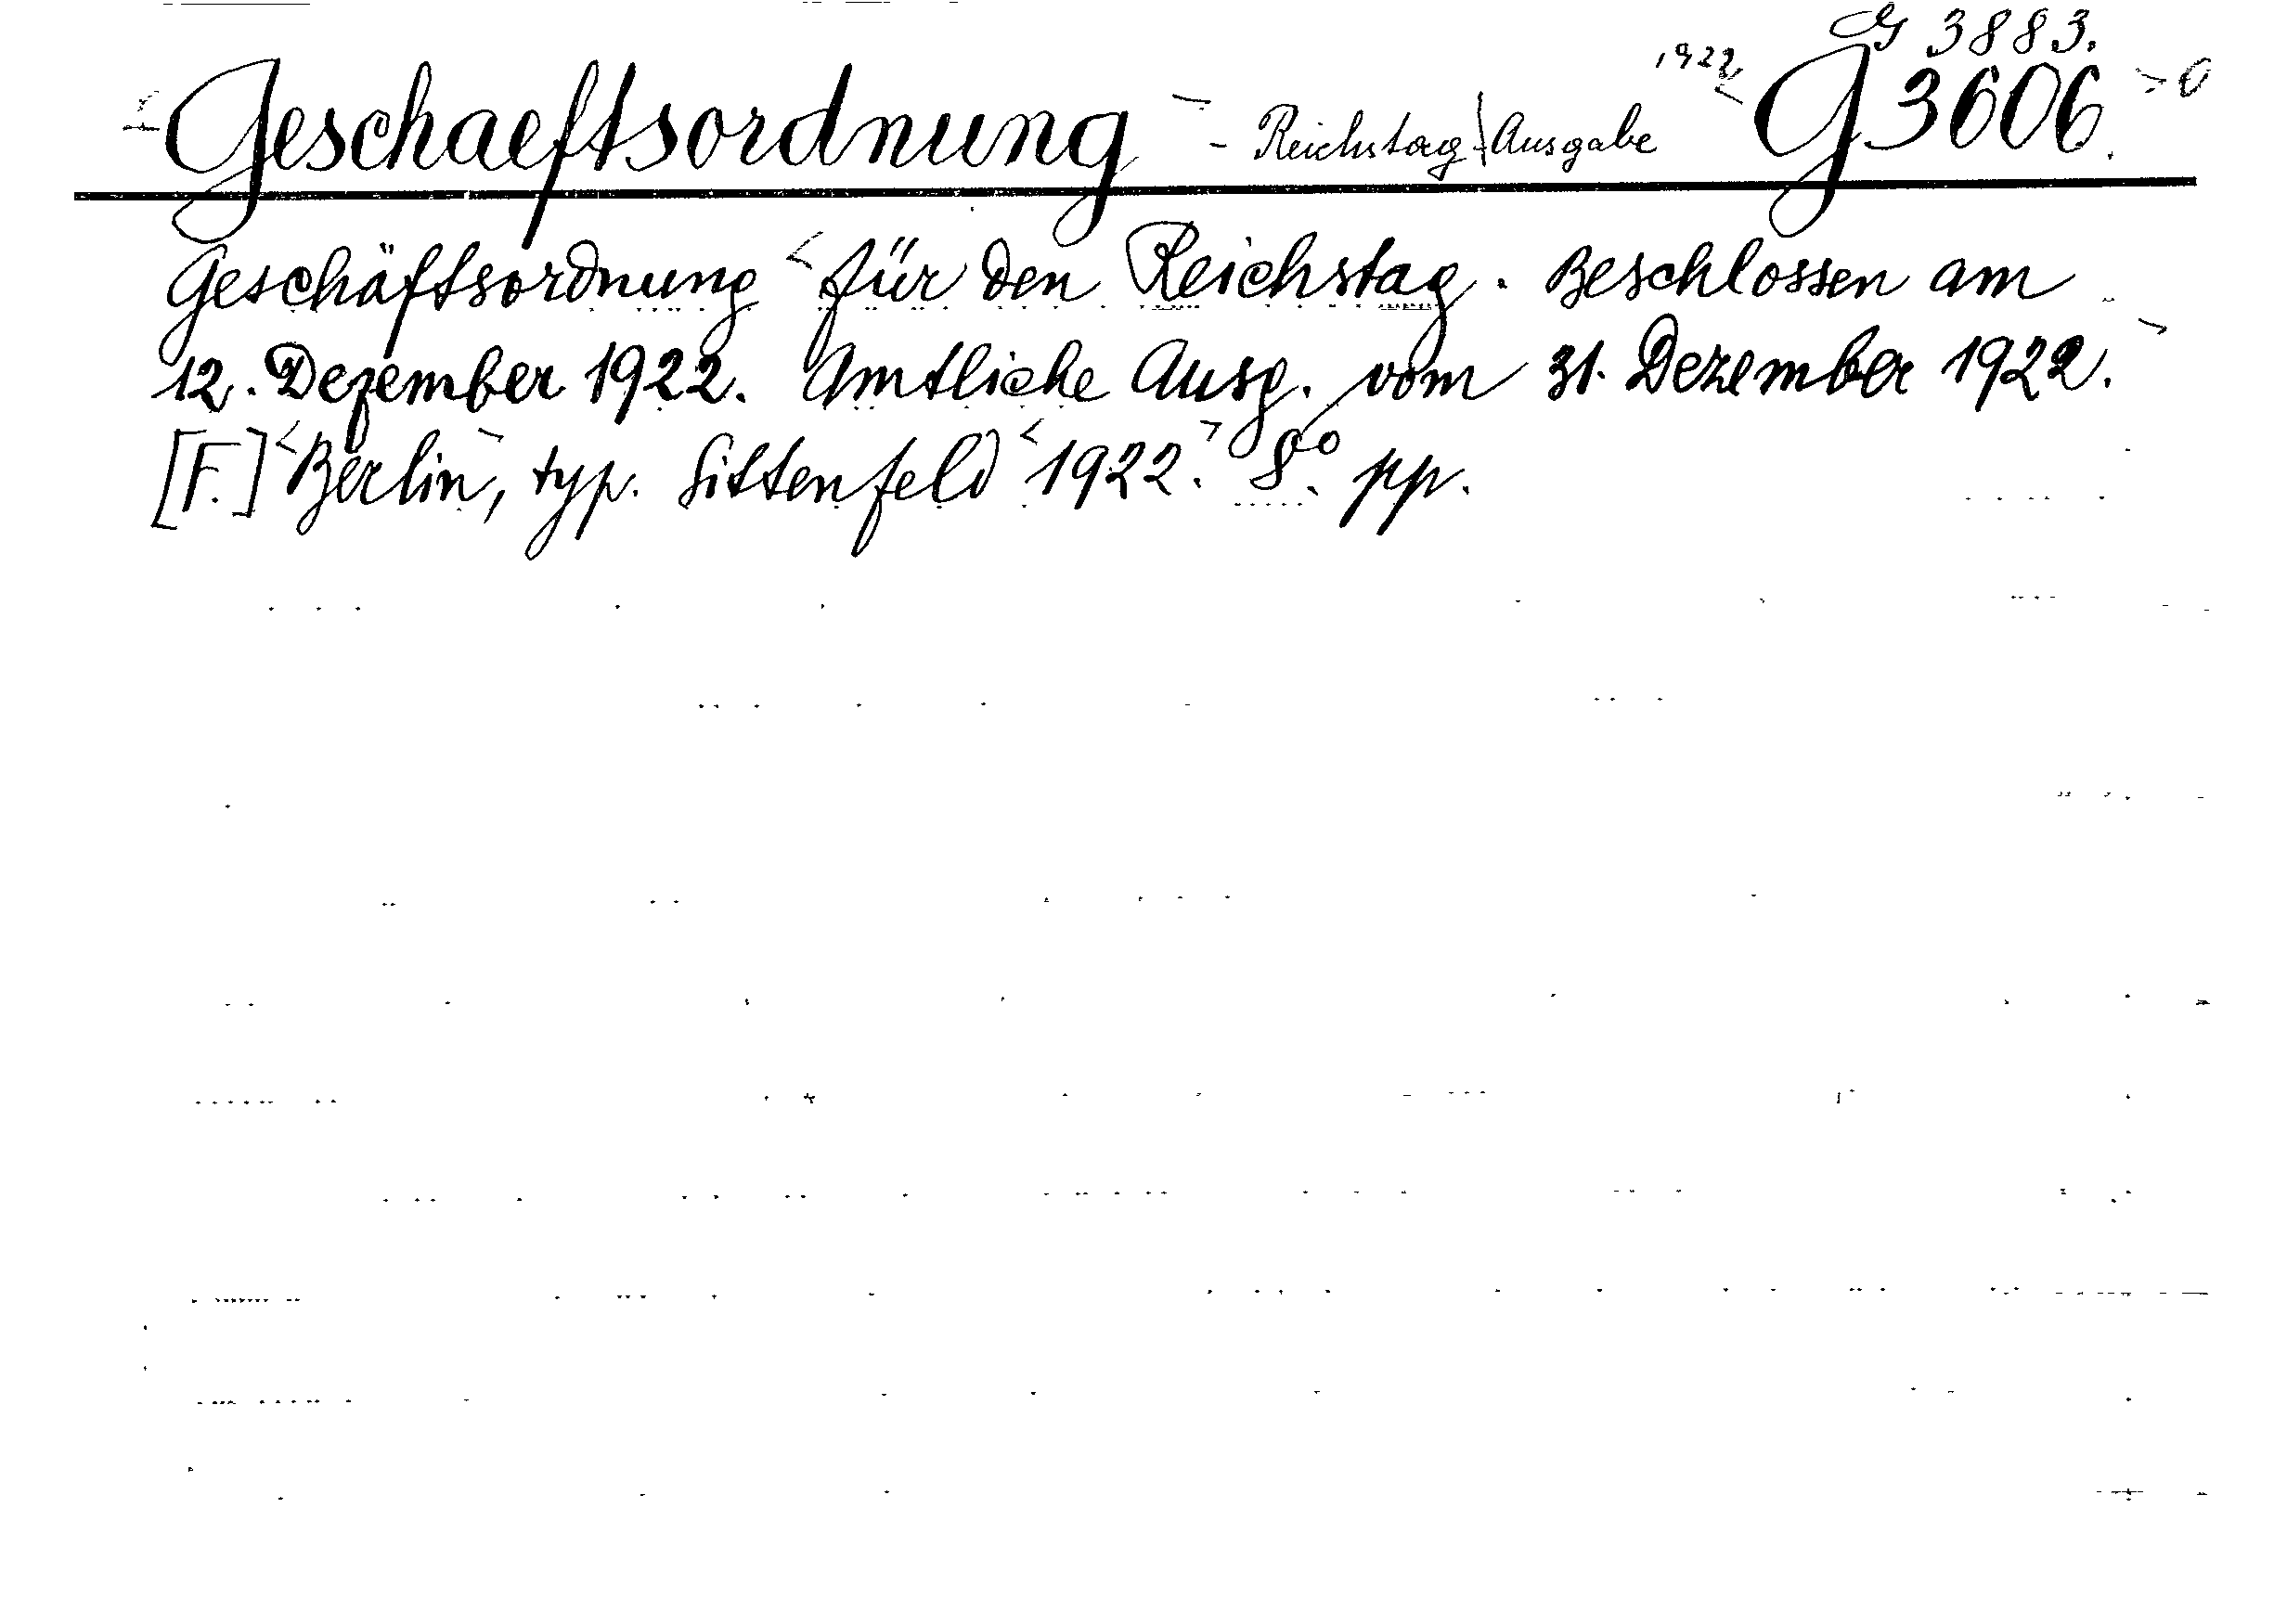 G 3883.
Geschaeftsordnung - Reichstag - Ausgabe 1922 G 3606.
Geschäftsordnung für den Reichstag. Beschlossen am
12. Dezember 1922. Amtliche Ausg. vom 31. Dezember 1922.
[F.] Berlin, typ. Sittenfeld 1922. 8° pp.